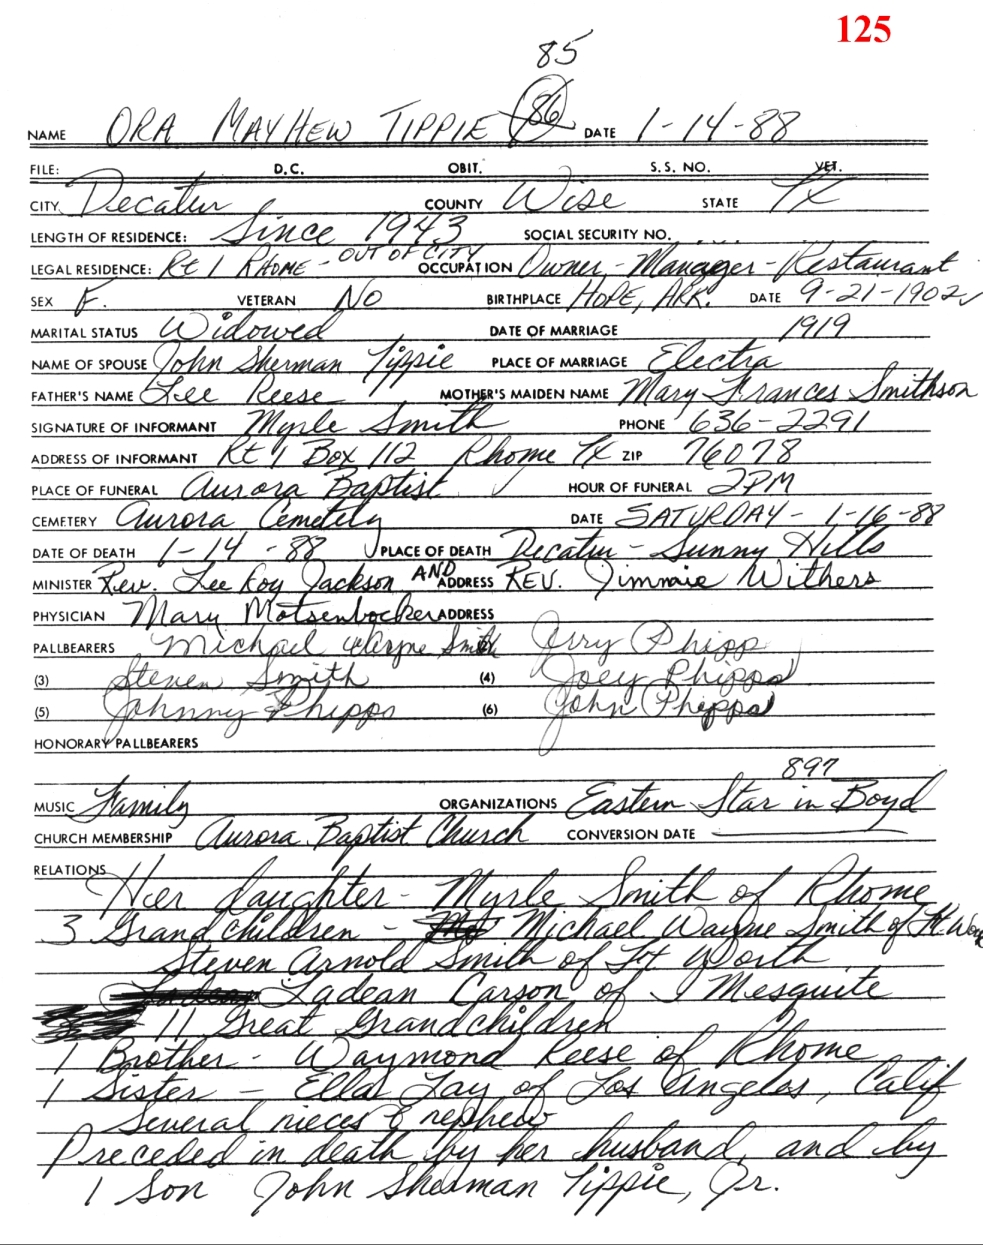 125
85
NAME ORA MAYHEW TIPPIE 86 DATE 1-14-88
FILE: D.C. OBIT. S.S. NO. VET.
CITY. Decatur COUNTY Wise STATE TX
LENGTH OF RESIDENCE: Since 1943 SOCIAL SECURITY NO. ....
LEGAL RESIDENCE: Rt 1 RHOME - OUT OF CITY OCCUPATION Owner - Manager - Restaurant
SEX F. VETERAN NO BIRTHPLACE HOPE, ARK. DATE 9-21-1902
MARITAL STATUS Widowed DATE OF MARRIAGE 1919
NAME OF SPOUSE John Sherman Tippie PLACE OF MARRIAGE Electra
FATHER'S NAME Lee Reese MOTHER'S MAIDEN NAME Mary Frances Smithson
SIGNATURE OF INFORMANT Myrle Smith PHONE 636-2291
ADDRESS OF INFORMANT Rt 1 Box 112 Rhome Tx ZIP 76078
PLACE OF FUNERAL Aurora Baptist HOUR OF FUNERAL 2PM
CEMETERY Aurora Cemetety DATE SATURDAY - 1-16-88
DATE OF DEATH 1-14-88 PLACE OF DEATH Decatur - Sunny Hills
MINISTER Rev. Lee Roy Jackson AND ADDRESS REV. Jimmie Withers
PHYSICIAN Mary Motsenbocker ADDRESS
PALLBEARERS Michael Wayne Smith Jerry Phipp
(3) Steven Smith (4) Joey Phipps
(5) Johnny Phipps (6) John Phipps
HONORARY PALLBEARERS
897
MUSIC Family ORGANIZATIONS Eastern Star in Boyd
CHURCH MEMBERSHIP Aurora Baptist Church CONVERSION DATE
RELATIONS
Her daughter - Myrle Smith of Rhome
3 Grandchildren - Michael Wayne Smith of Ft. Worth
Steven Arnold Smith of Ft Worth
Ladean Carson of Mesquite
11 Great Grandchildren
1 Brother - Waymond Reese of Rhome
1 Sister - Ella Fay of Los Angelas, Calif
Several nieces & nephew
Preceded in death by her husband, and by
1 Son John Sherman Tippie, Jr.